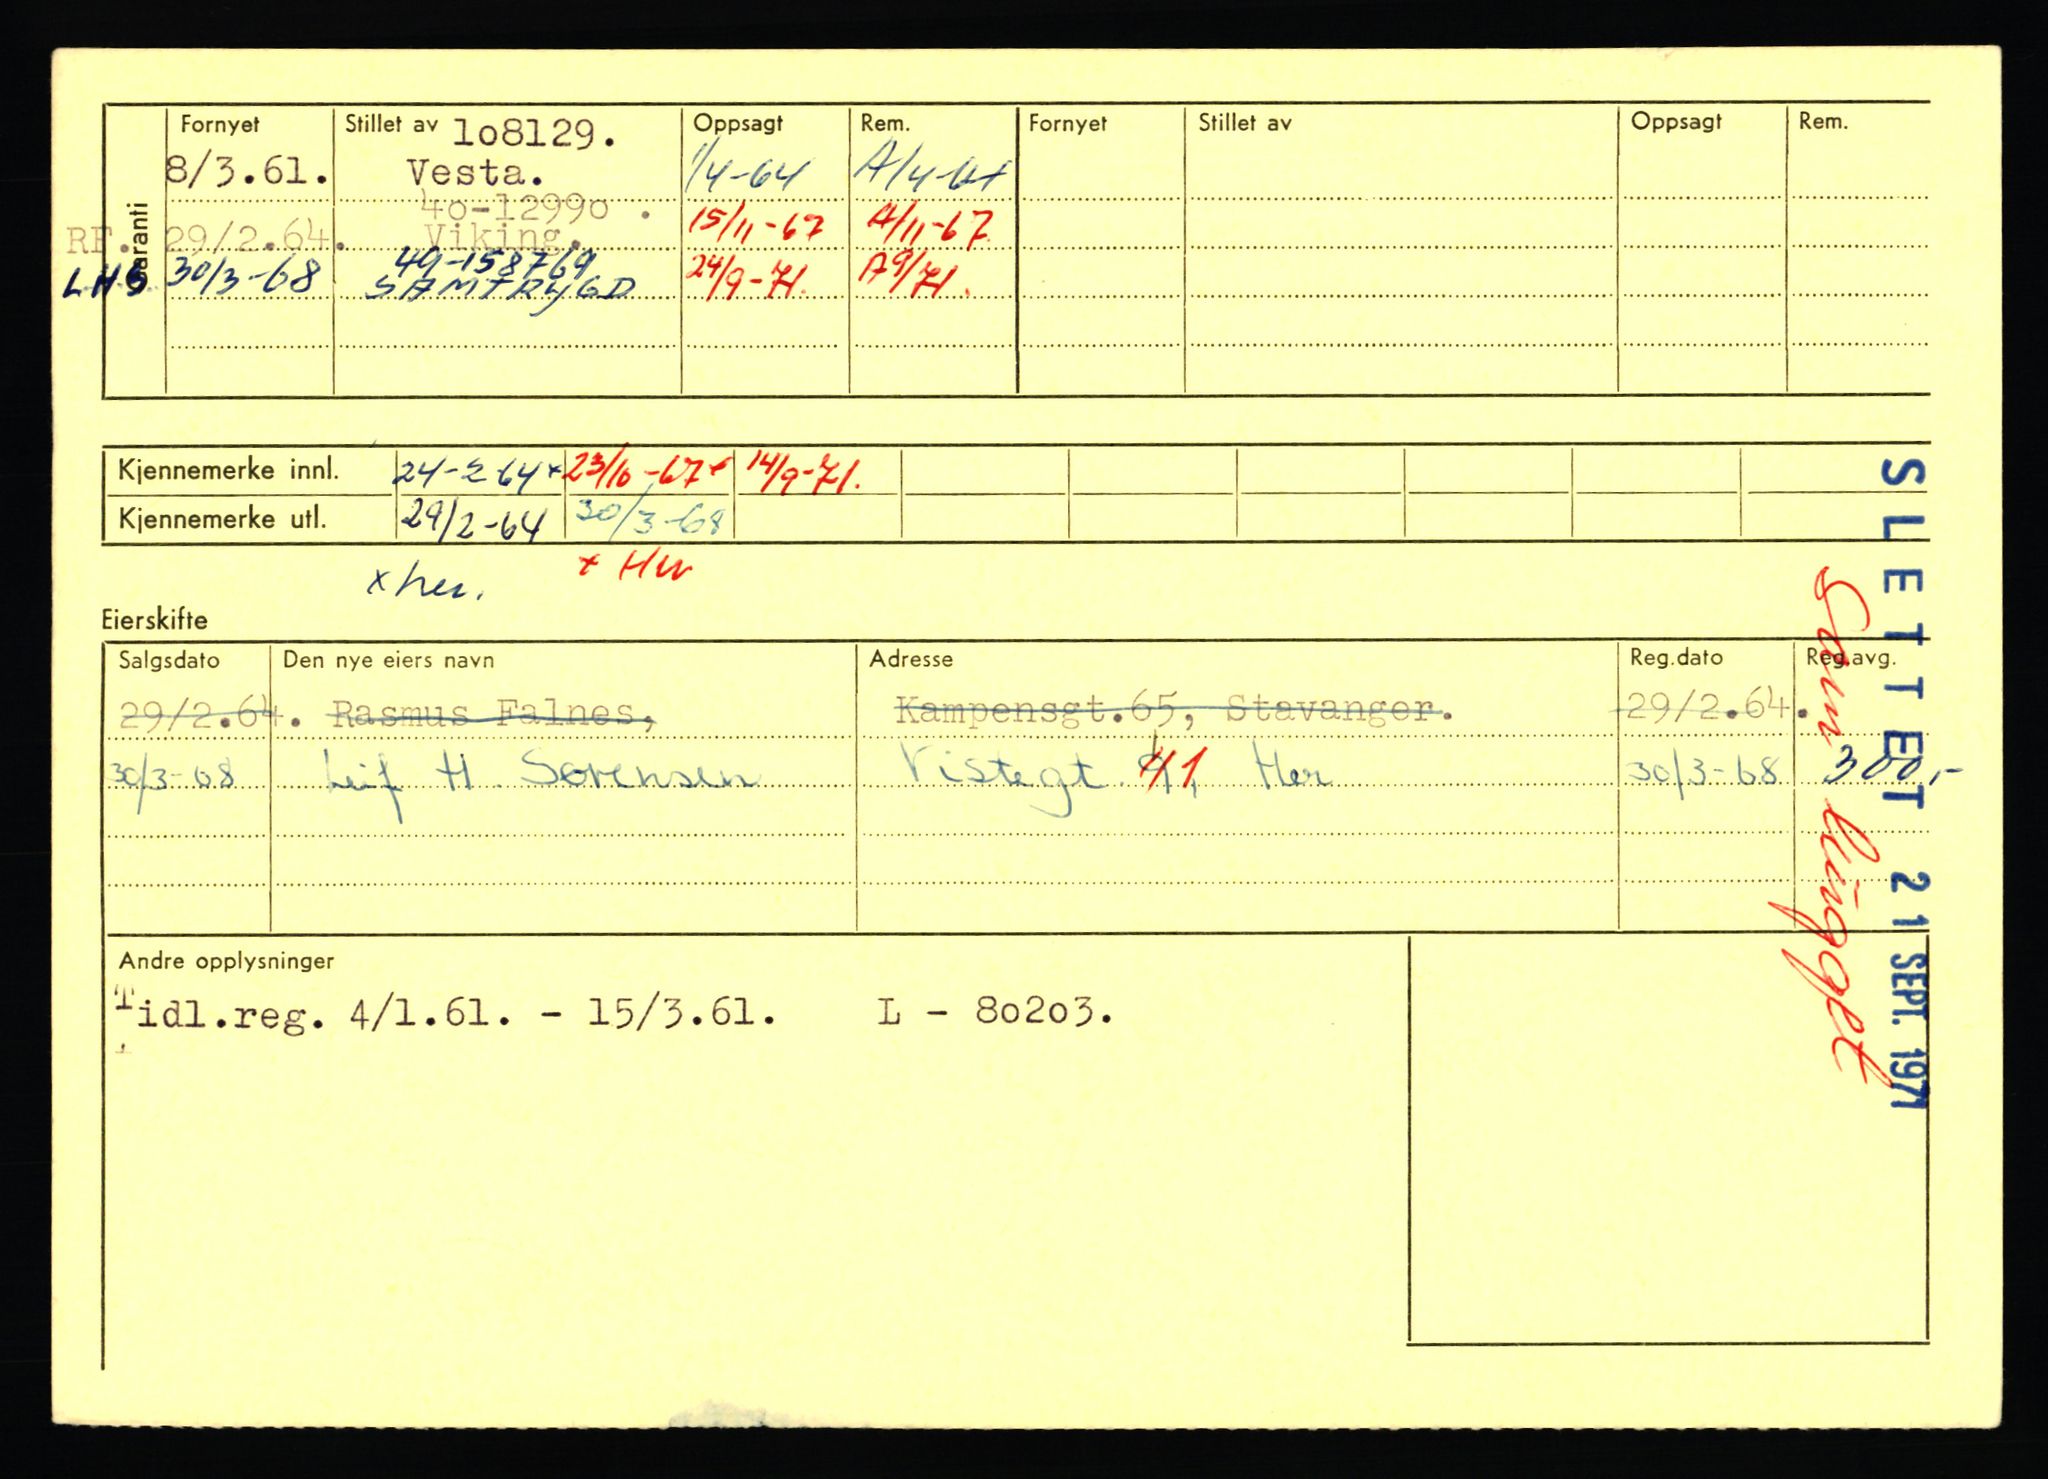 Fornyet Stillet av 108129. Oppsagt Rem. Fornyet Stillet av Oppsagt Rem.
8/3.61. Vesta. 1/4-64 A/4-64
40-12990 .
RF. 29/2.64. Viking. 15/11-67 A/11-67
LHS 30/3-68 49-158769 24/9-71. A9/71.
SAMTRYGD
Garanti
Kjennemerke innl. 24-2-64x 23/10-67x 14/9-71.
Kjennemerke utl. 29/2-64 30/3-68
x her. x Her
Eierskifte
Salgsdato Den nye eiers navn Adresse Reg.dato Reg.avg.
29/2.64. Rasmus Falnes, Kampensgt.65, Stavanger. 29/2.64.
30/3-68 Leif H. Sørensen Vistegt. 41, Her 30/3-68 300,-
Andre opplysninger
Tidl.reg. 4/1.61. - 15/3.61. L - 80203.
SLETTET 21 SEPT. 1971
Som hugget